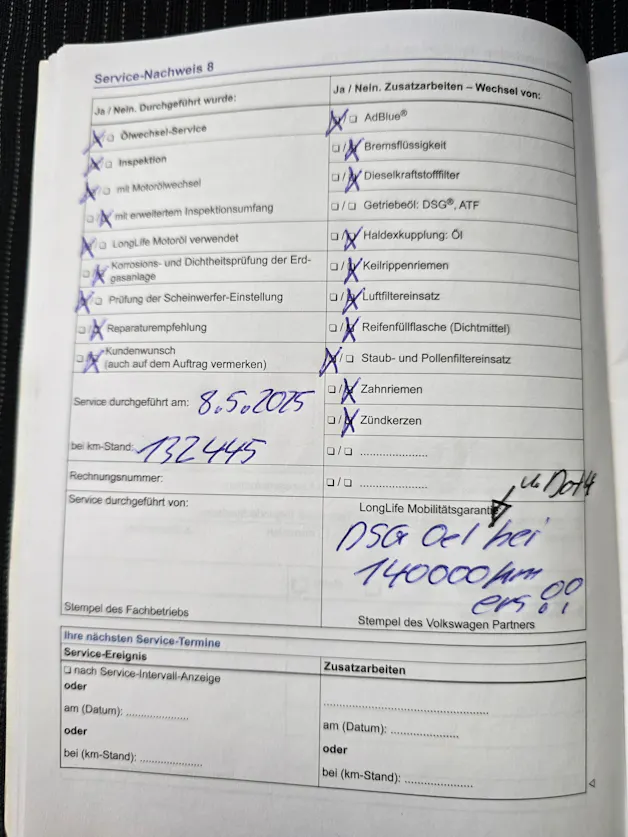 Service-Nachweis 8
Ja / Nein. Durchgeführt wurde:
☒/☐ Ölwechsel-Service
☒/☐ Inspektion
☒/☐ mit Motorölwechsel
☐/☒ mit erweitertem Inspektionsumfang
☒/☐ LongLife Motoröl verwendet
☐/☒ Korrosions- und Dichtheitsprüfung der Erd-
gasanlage
☒/☐ Prüfung der Scheinwerfer-Einstellung
☐/☒ Reparaturempfehlung
☐/☒ Kundenwunsch
(auch auf dem Auftrag vermerken)
Service durchgeführt am: 8.5.2025
bei km-Stand: 132445
Rechnungsnummer:
Service durchgeführt von:
Stempel des Fachbetriebs
Ja / Nein. Zusatzarbeiten – Wechsel von:
☒/☐ AdBlue®
☐/☒ Bremsflüssigkeit
☐/☒ Dieselkraftstofffilter
☐/☐ Getriebeöl: DSG®, ATF
☐/☒ Haldexkupplung: Öl
☐/☒ Keilrippenriemen
☐/☒ Luftfiltereinsatz
☐/☒ Reifenfüllflasche (Dichtmittel)
☒/☐ Staub- und Pollenfiltereinsatz
☐/☒ Zahnriemen
☐/☒ Zündkerzen
☐/☐ .....................
☐/☐ .....................
Dot4
LongLife Mobilitätsgarantie
DSG Oel bei
140000km
ers.!!
Stempel des Volkswagen Partners
Ihre nächsten Service-Termine
Service-Ereignis
☐ nach Service-Intervall-Anzeige
oder
am (Datum): ...................
oder
bei (km-Stand): ...................
Zusatzarbeiten
.................................................
am (Datum): .....................
oder
bei (km-Stand): .....................